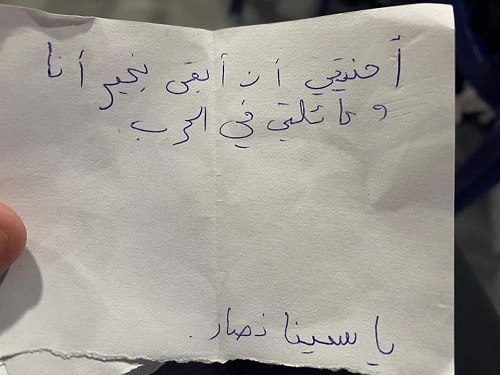 أمنيتي أن أبقى بخير أنا
وعائلتي في الحرب
ياسمينا نصار.